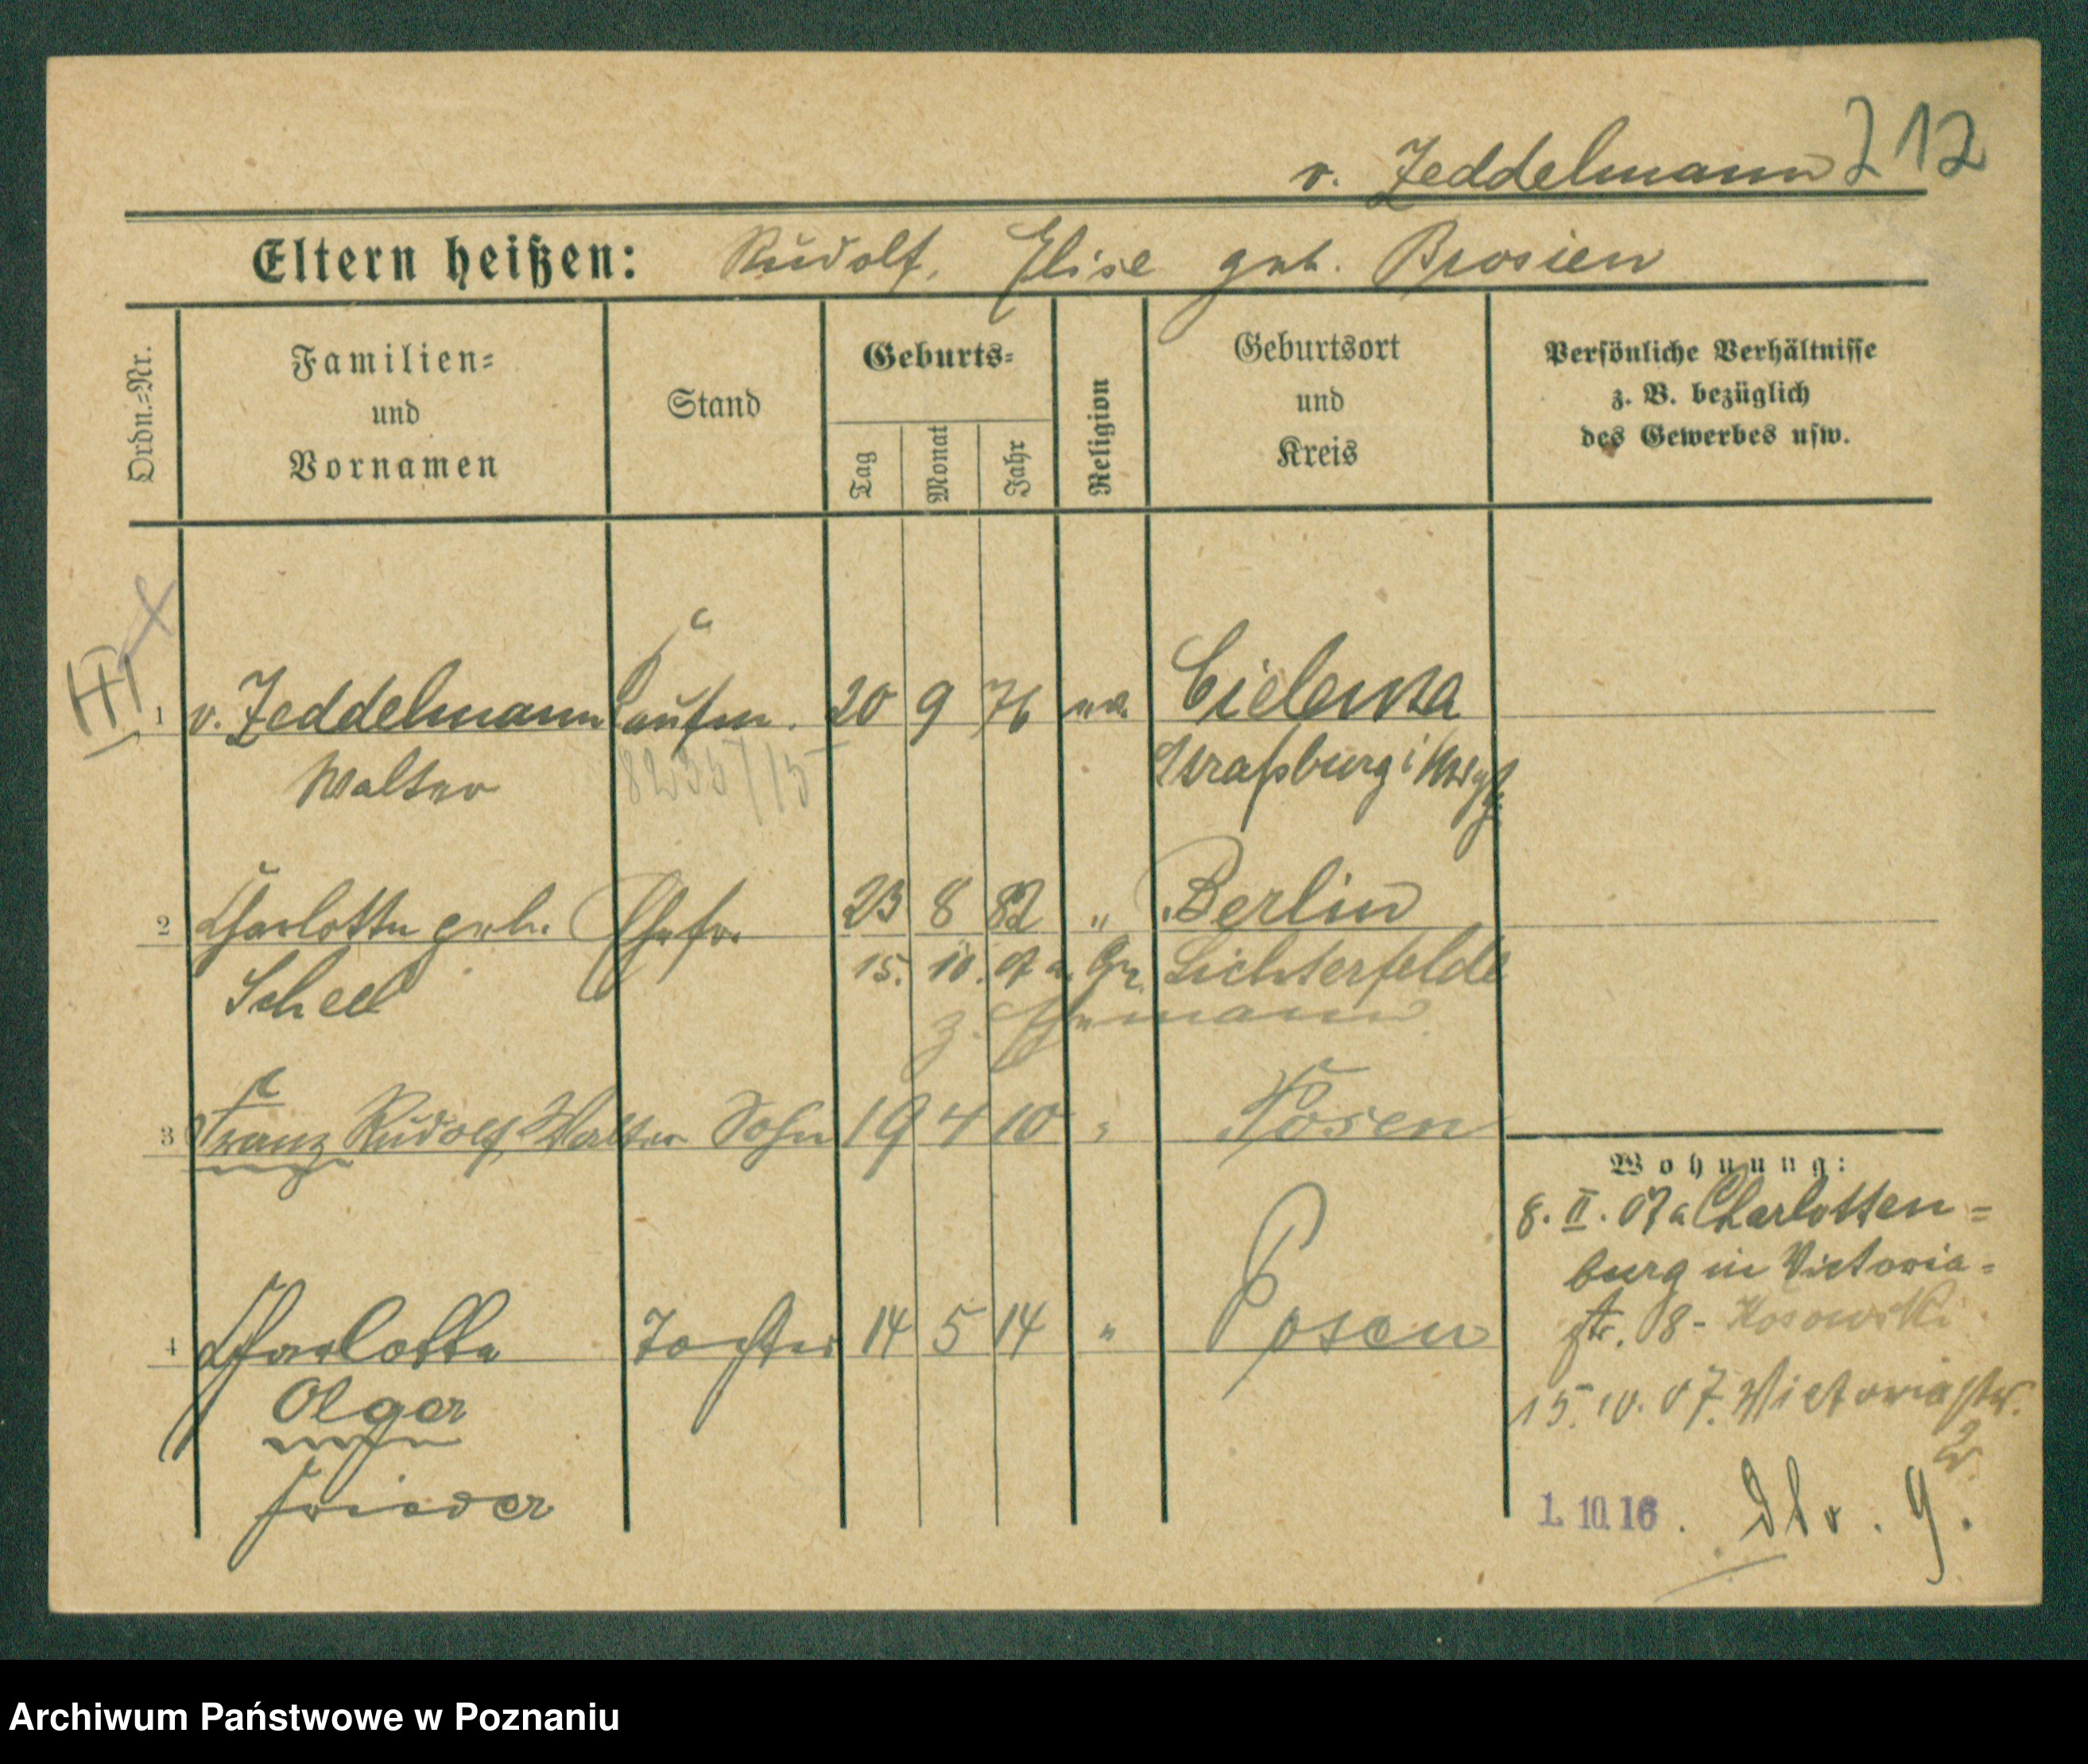 v. Zeddelmann 212
Eltern heißen: Rudolf, Elise geb. Brosien
Ordn.=Nr.
Familien=
und
Vornamen
Stand
Geburts=
Tag
Monat
Jahr
Religion
Geburtsort
und
Kreis
Persönliche Verhältnisse
z. B. bezüglich
des Gewerbes usw.
1 v. Zeddelmann Kaufm. 20 9 76 ev. Cielenta
Walter Straßburg i Westpr.
2 Charlotte geb. Ehefr. 23 8 82 " Berlin
Scheel 15. 10. 07 a. Gr. Lichterfelde
z. Ehemann
3 Franz Rudolf Walter Sohn 19 4 10 " Posen
4 Charlotte Tochter 14 5 14 " Posen
Olga
Frieda
Wohnung:
8. II. 07 a Charlotten=
burg in Victoria=
str. 18 - Kosowski
15. 10. 07. Victoriastr.
2.
1. 10. 16.
Archiwum Państwowe w Poznaniu